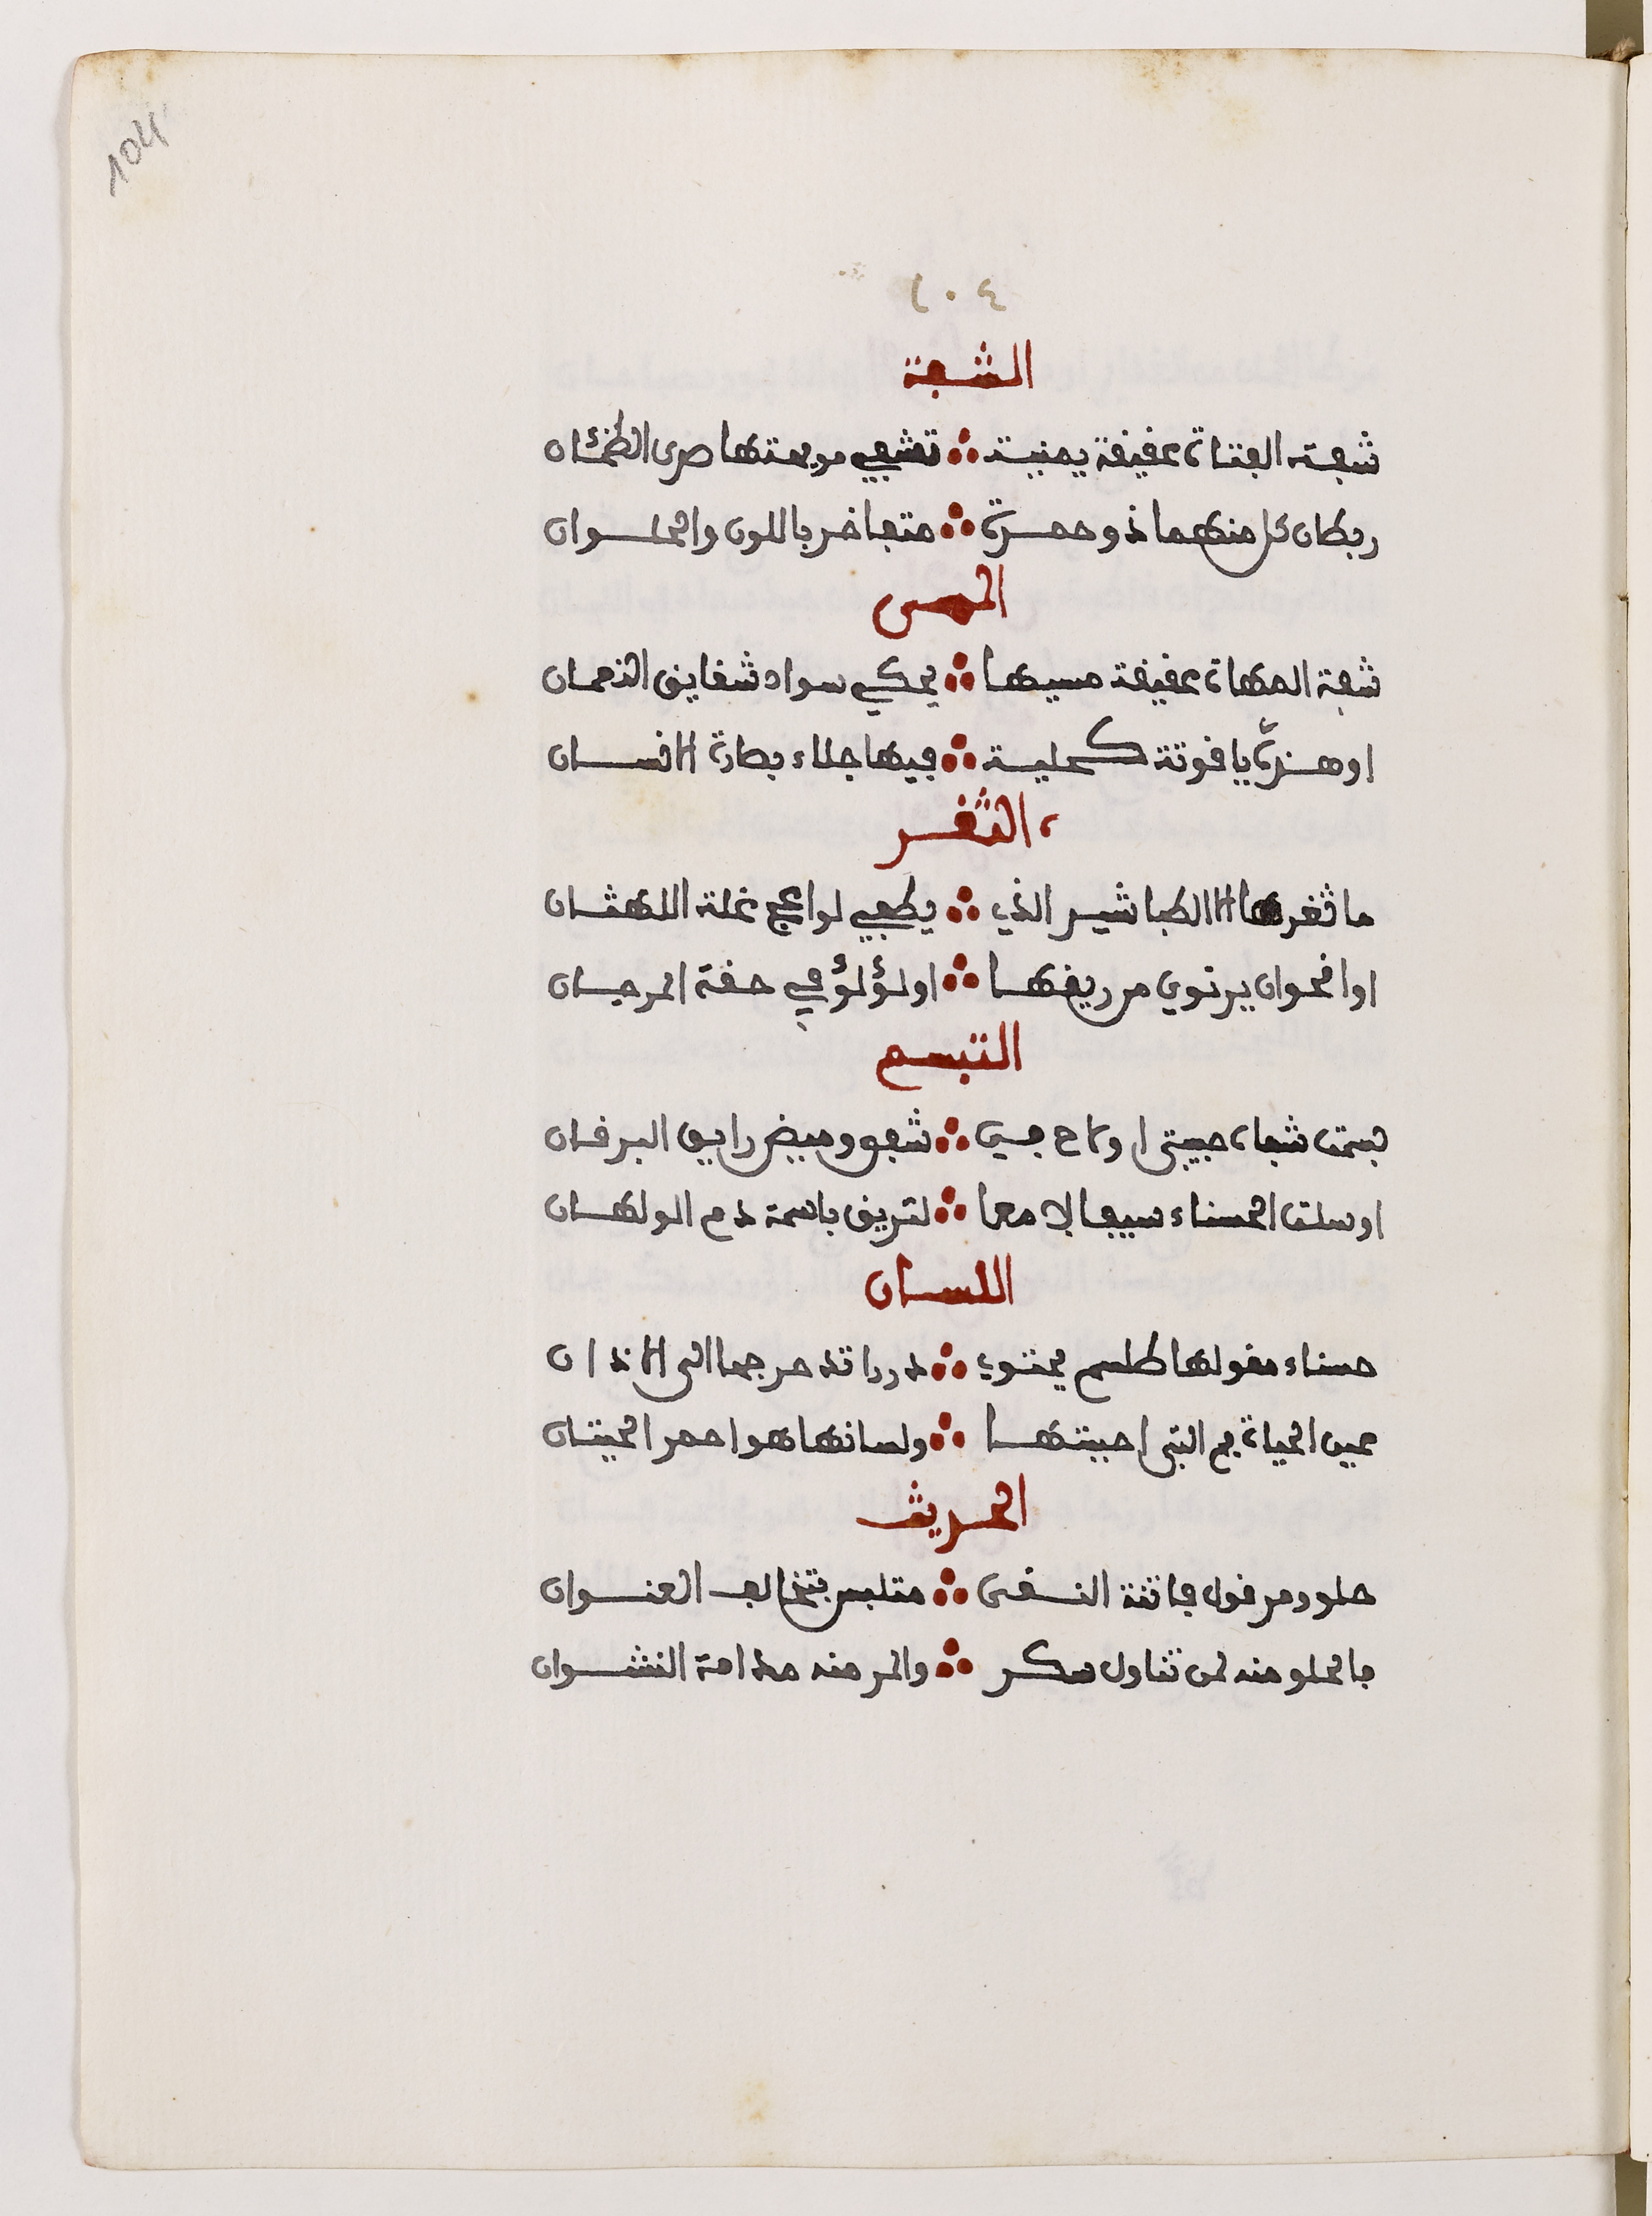 104
١٠٤
الشفة
شفة الفتاة عقيقة يمنية ∴ تشفي مويهتها صدى الظمئان
ربطان كل منهما ذو حمرة ∴ متفاخر باللون والحلوان
اللعس
شفة المهاة عقيقة مسيها ∴ يحكي سواد شقايق النعمان
او هذه ياقوتة كحلية ∴ فيها جلاء بصارة الانسان
الثغر
ما ثغرها الا الطباشير الذي ∴ يطفي لواعج غلة اللهثان
او اقحوان يرتوي من ريقها ∴ او لؤلؤ في حقة المرجان
التبسم
بسمت شفاه حبيبتي او لاح في ∴ شفق وميض رايق البرقان
او سلت الحسناء سيفا لامعا ∴ لتريق باسمة دم الولهان
اللسان
حسناء مقولها طلسم يحتوي ∴ دررا تدحرجها الى الاذان
عين الحياة فم التي احببتها ∴ ولسانها هو احمر الحيتان
الحديث
حلو ومر قول فاتنة النقى ∴ متلبس بتخالف العنوان
فالحلو منه لمن تناول سكر ∴ والمر منه مدامة النشوان